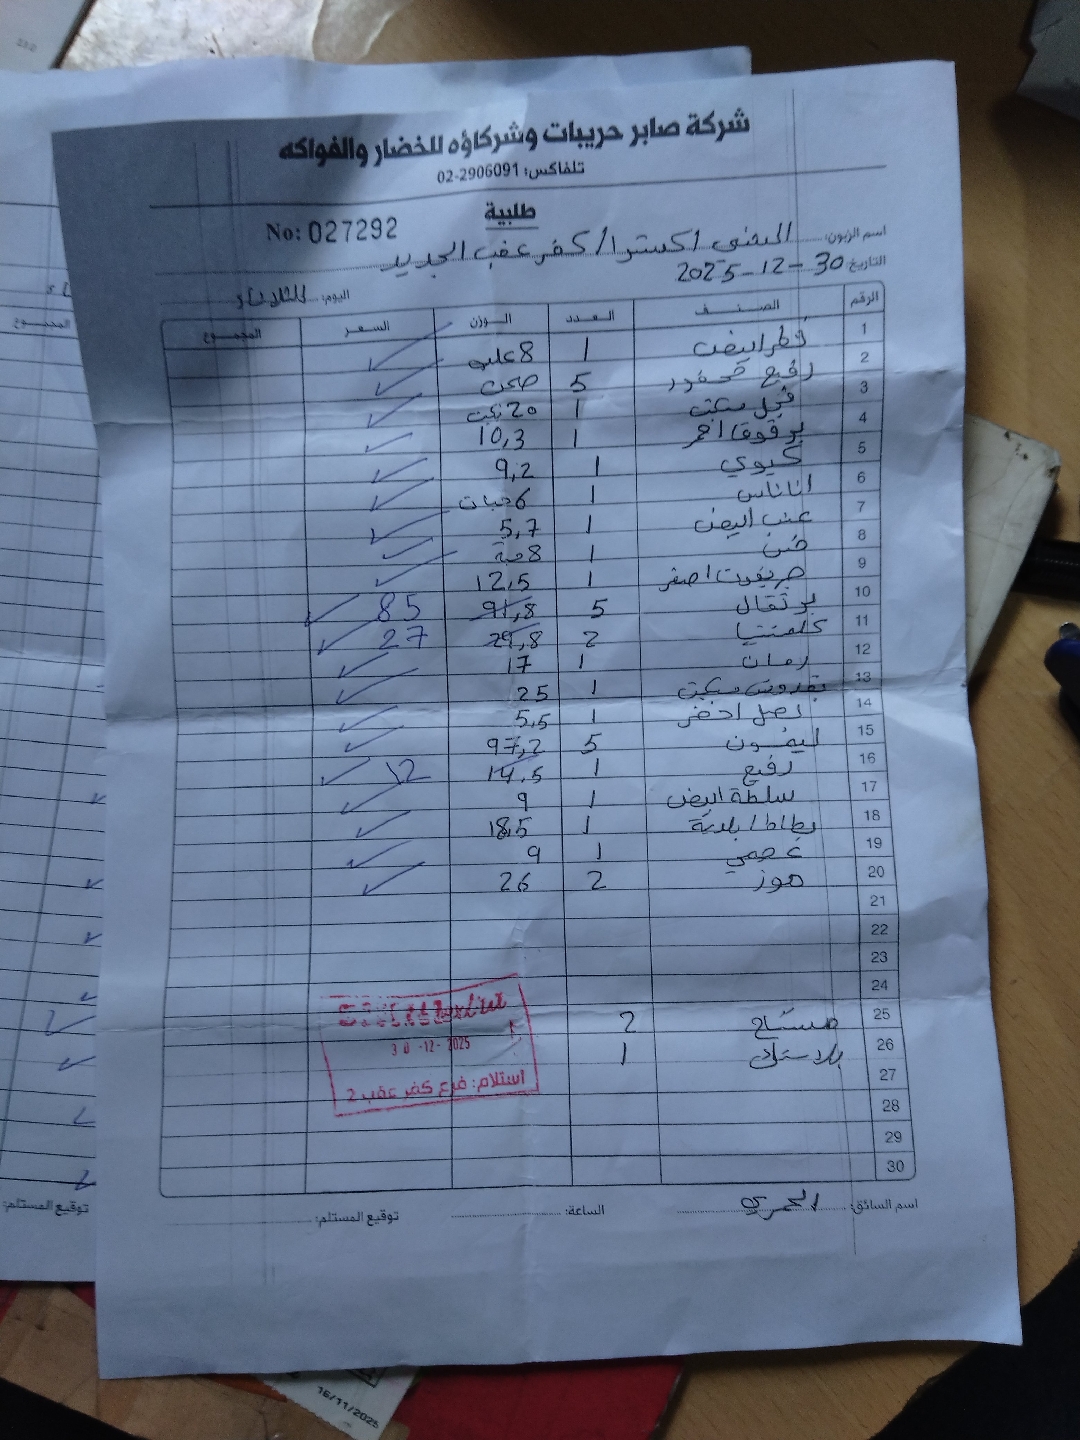 شركة صابر حريبات وشركاؤه للخضار والفواكه
تلفاكس: 02-2906091
طلبية
No: 027292
اسم الزبون: اكسترا / كفر عقب الجديد
التاريخ: 30-12-2025
اليوم: الثلاثاء
الرقم الصنف العدد الوزن السعر المجموع
1 فطر ابيض 1 8 علب
2 رفيع محفور 5 صحن
3 فجل مبكت 1 20 بكيت
4 برقوق احمر 1 10,3
5 كيوي 1 9,2
6 اناناس 1 6 حبات
7 عنب ابيض 1 5,7
8 خس 1 8 حبة
9 جريفوت اصفر 1 12,5
10 برتقال 5 91,8 85
11 كلمنتيا 2 29,8 27
12 رمان 1 17
13 بقدونس مبكت 1 25
14 بصل اخضر 1 5,5
15 ليمون 5 97,2
16 رفيع 1 14.5 12
17 سلطة ابيض 1 9
18 بطاطا بلدية 1 18,5
19 عجمي 1 9
20 موز 2 26
21
22
23
24
25 مشتاح 2
26 بلاستك 1
27
28
29
30
30-12-2025
استلام: فرع كفر عقب 2
اسم السائق: العمري
الساعة:
توقيع المستلم:
المجموع
توقيع المستلم:
16/11/2025